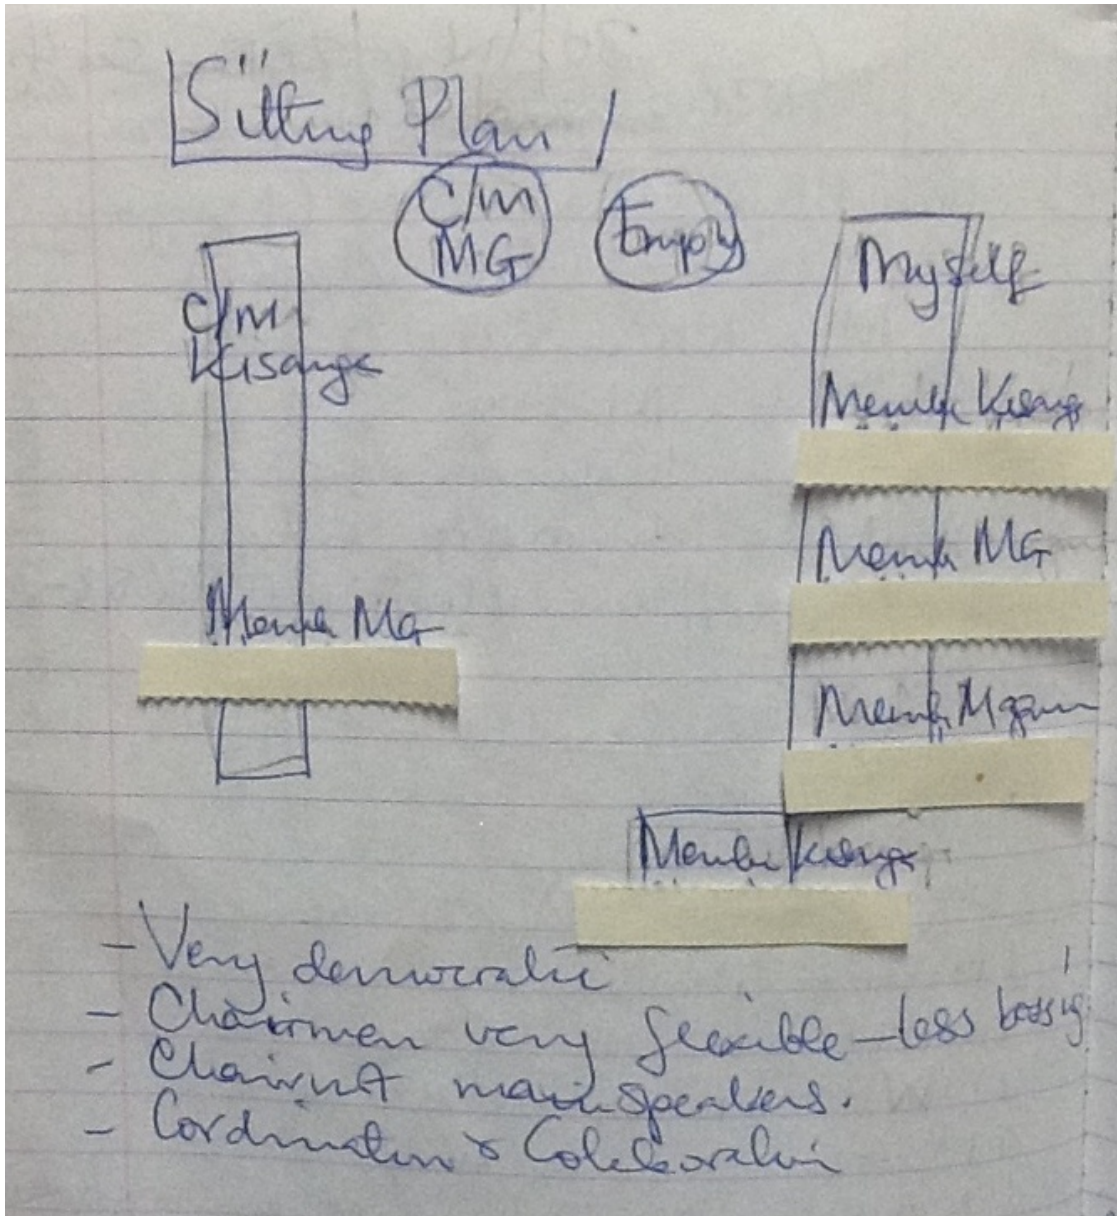 Sitting Plan
C/m
MG
Empty
C/m
Kisange
Myself
Member Kisange
Member MG
Member MG
Member
Member Kisange
- Very democratic
- Chairmen very flexible - less bossing
- Chair not main speakers.
- Cordination & Colaboration